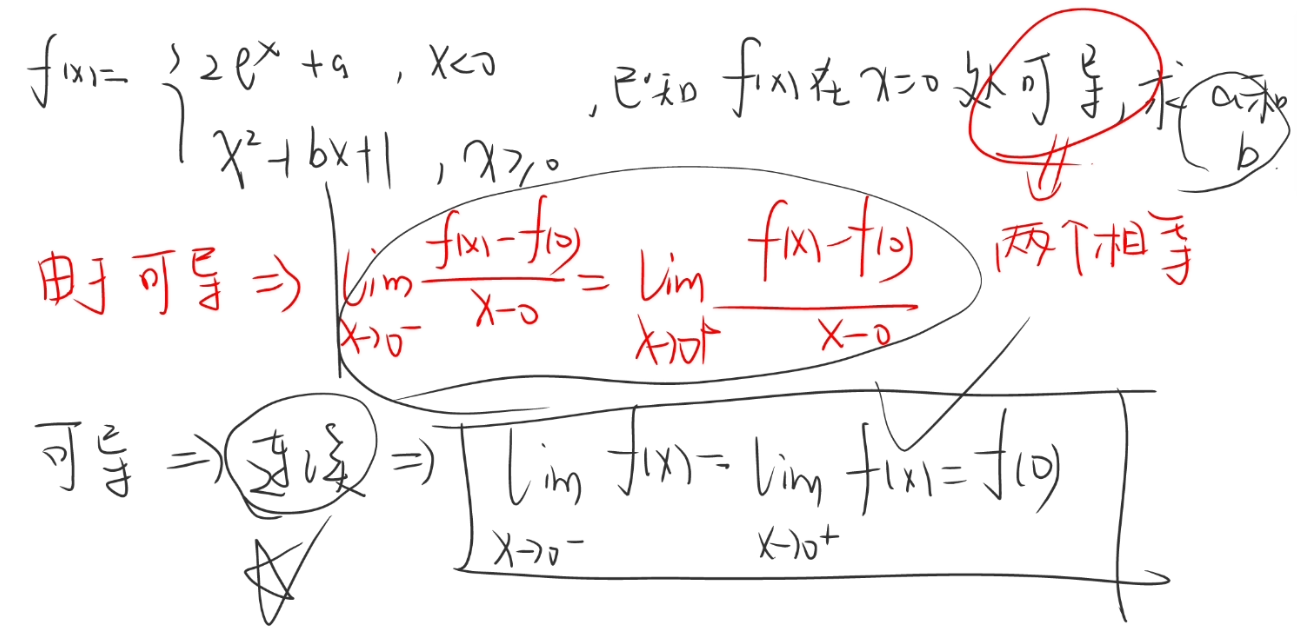 f(x)= { 2e^x + a , x<0
x²+bx+1 , x≥0
, 已知 f(x)在 x=0 处可导, 求 a和b
由于可导 => lim x→0⁻ (f(x)-f(0))/(x-0) = lim x→0⁺ (f(x)-f(0))/(x-0)
两个相等
可导 => 连续 => lim x→0⁻ f(x) = lim x→0⁺ f(x) = f(0)